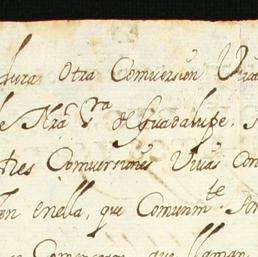 dura. Otra Comversion Viva
de Nrâ. Sra de Guadalupe. S
tres Comversiones Vivas con
en enella, que Comunmte son
que llaman